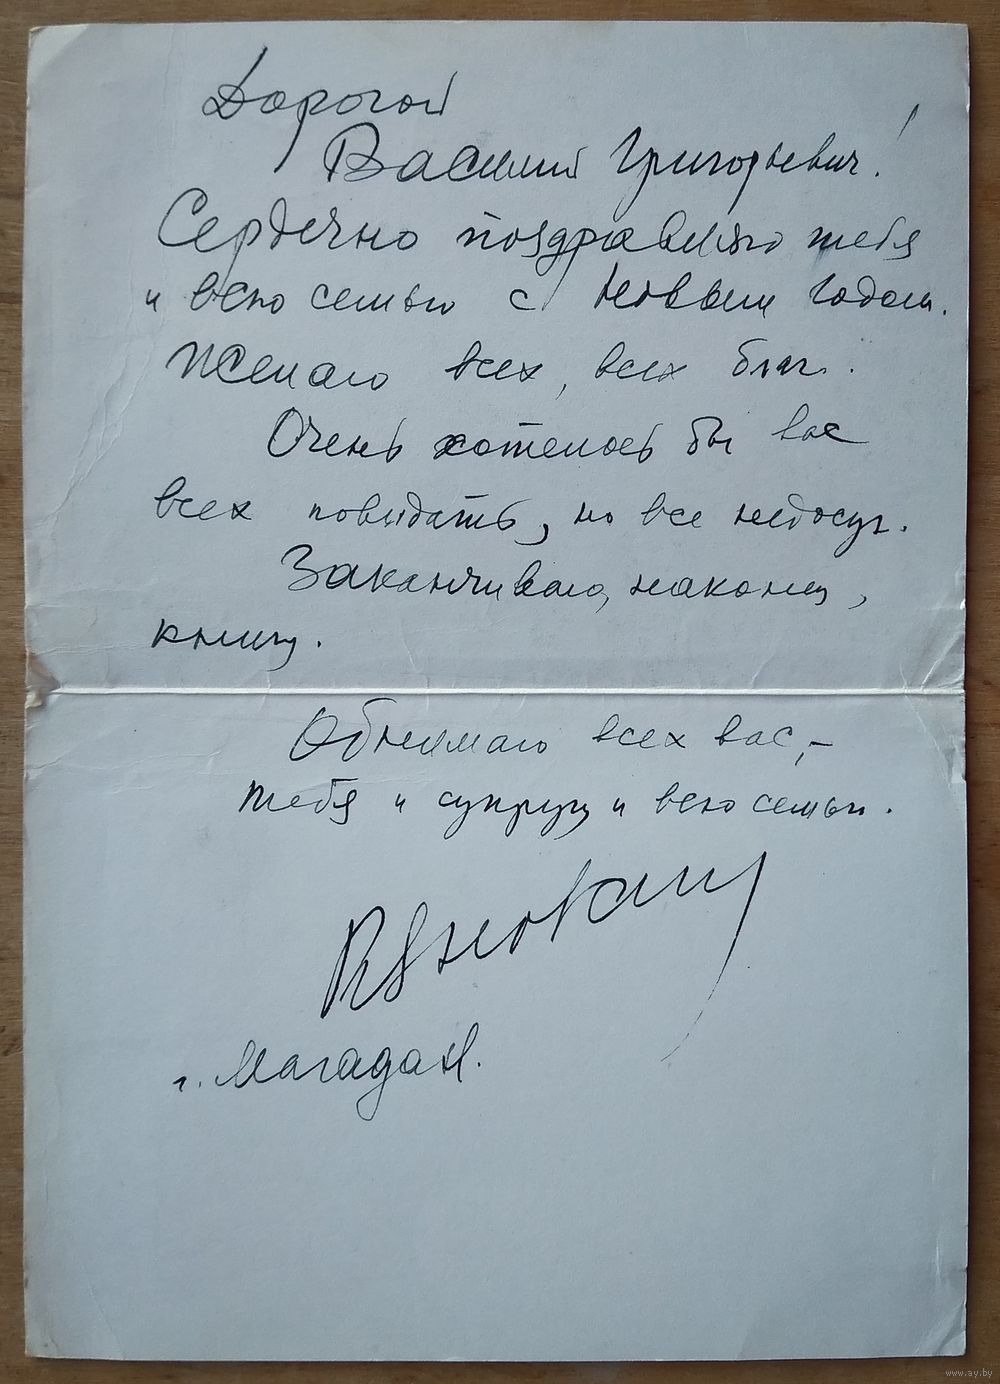 Дорогой
Василий Григорьевич!
Сердечно поздравляю тебя
и всю семью с Новым годом.
Желаю всех, всех благ.
Очень хотелось бы вас
всех повидать, но все недосуг.
Заканчиваю, наконец,
книгу.
Обнимаю всех вас,–
тебя и супругу и всю семью.
г. Магадан.
www.ay.by